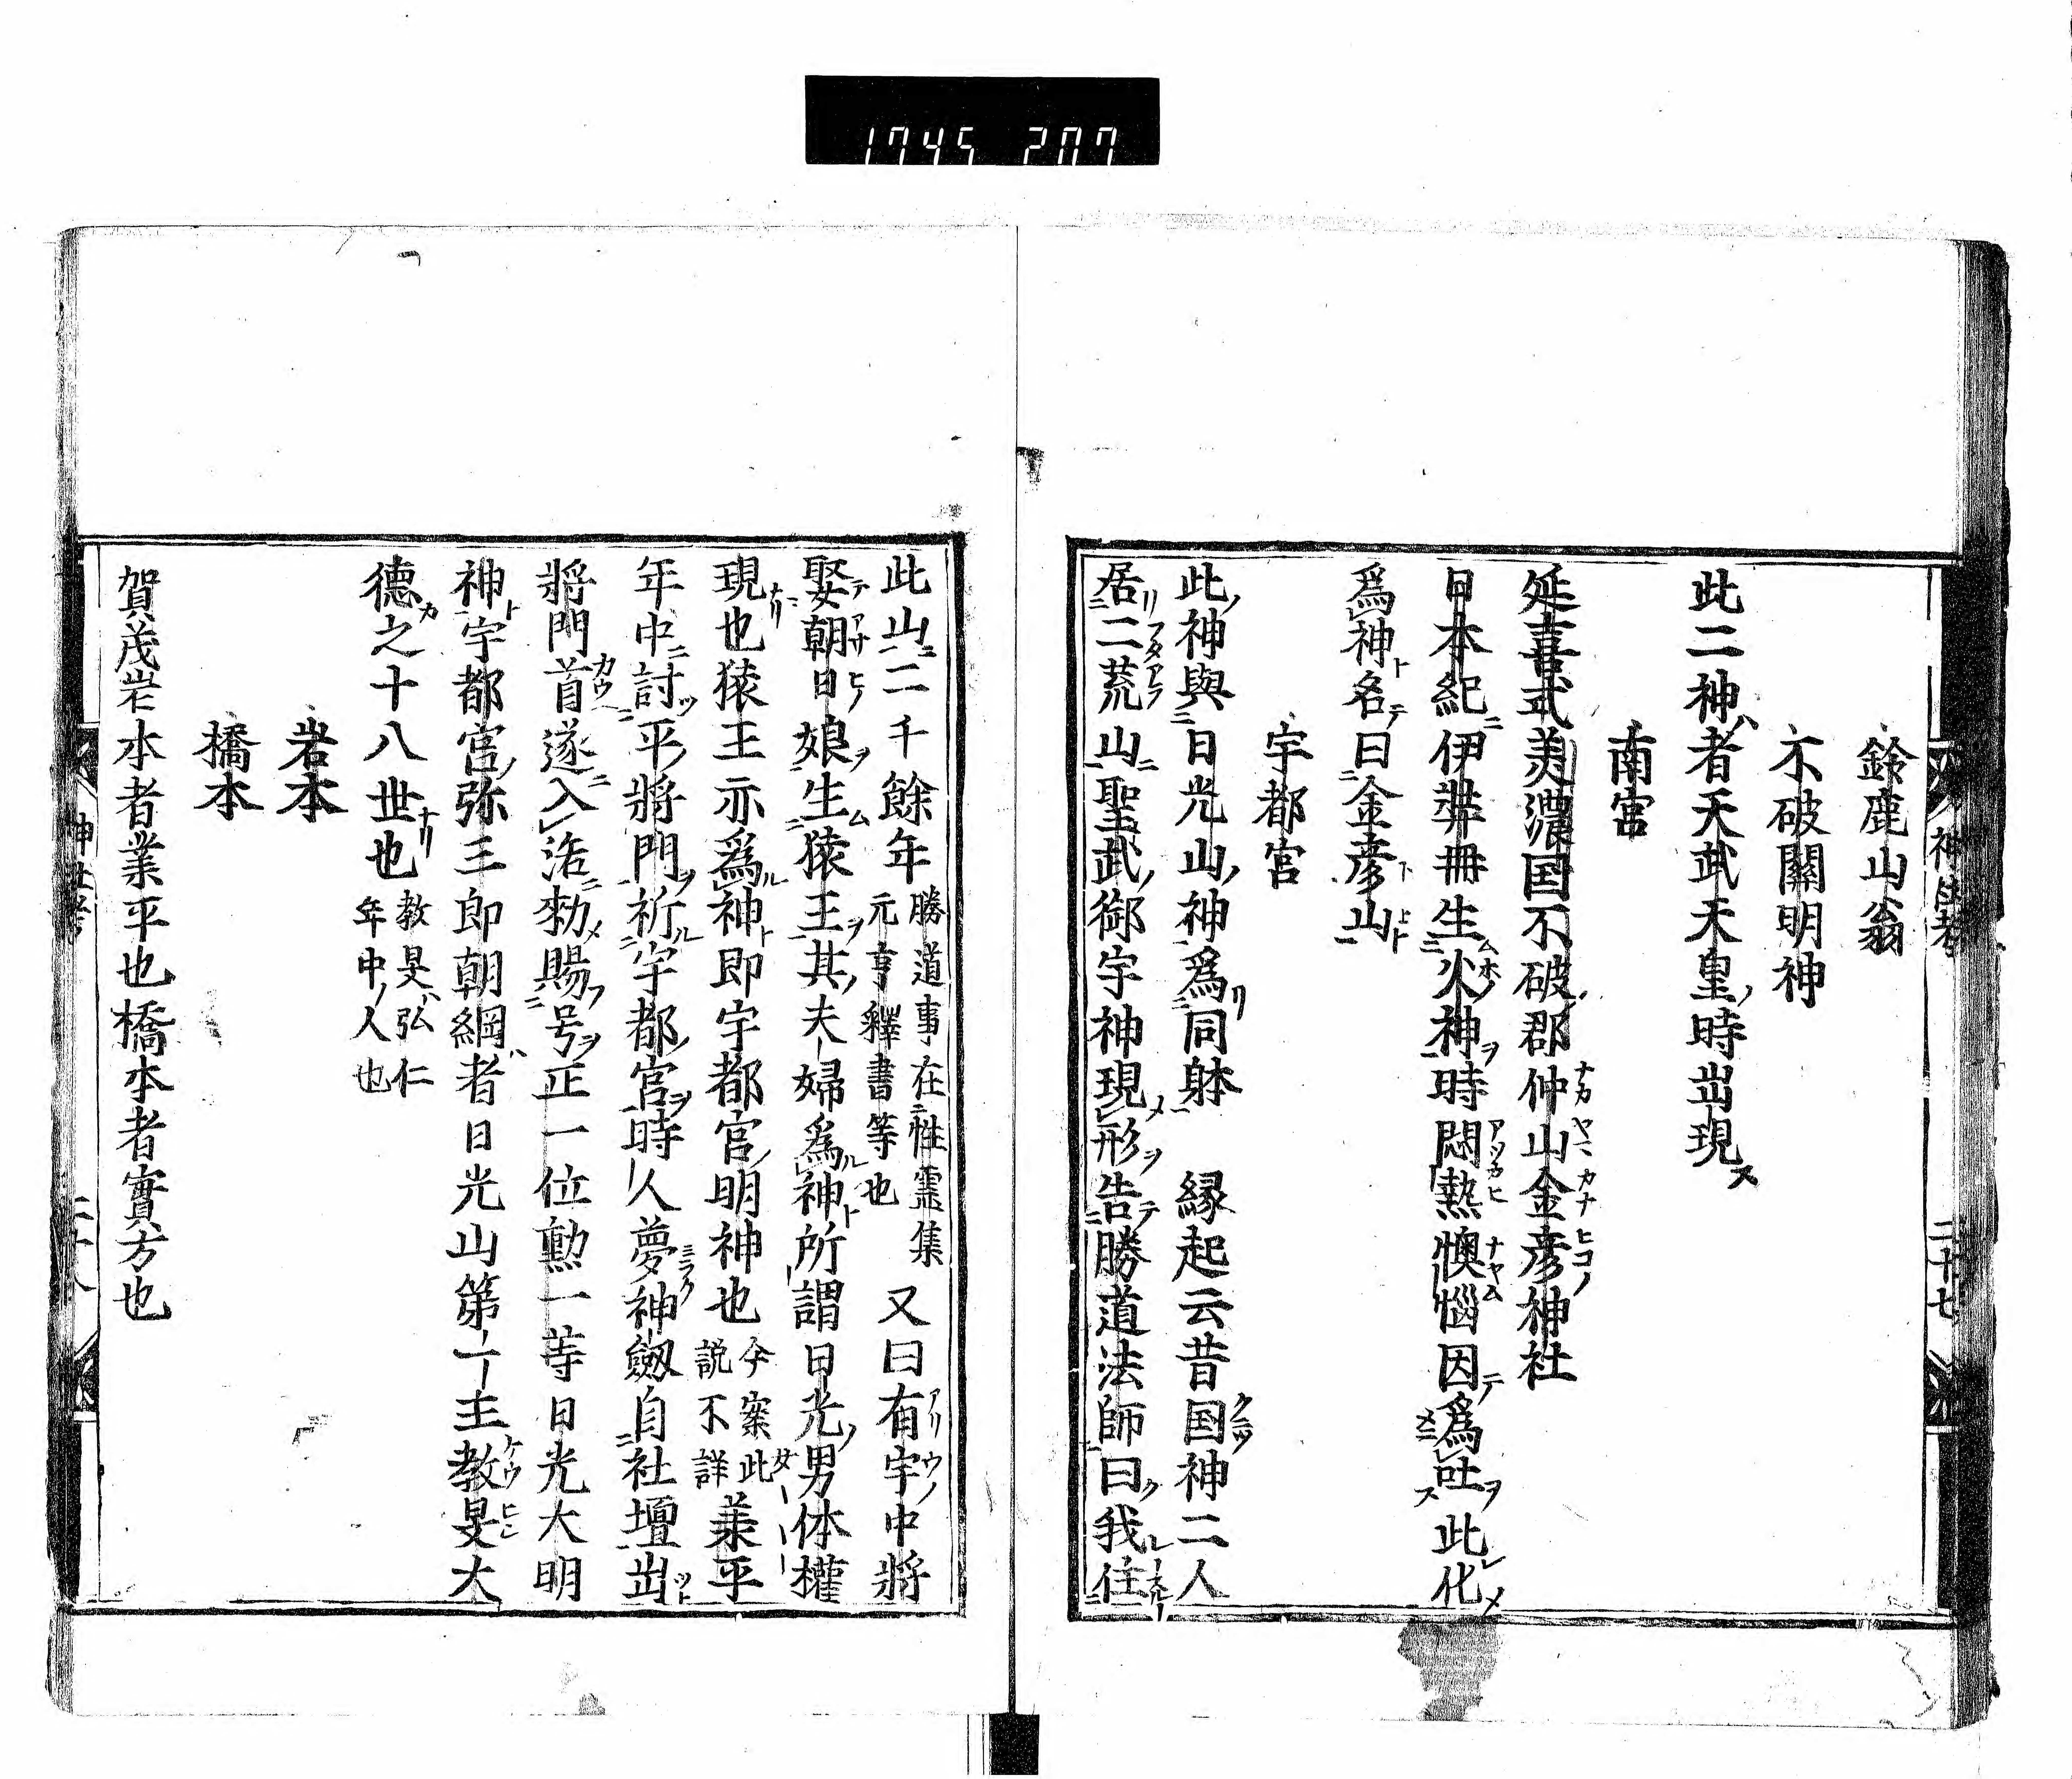 1745 207
鈴鹿山翁
不破關明神
此二神者天武天皇時出現
南宮
延喜式美濃国不破郡仲山金彦神社
日本紀伊弉冊生火神時悶熱懊惱因爲吐此化
爲神名曰金彦山
宇都宮
此神與日光山神爲同躰　縁起云昔国神二人
居二荒山聖武御宇神現形告勝道法師曰我住
此山二千餘年
勝道事在性霊集
元亨釋書等也
又曰有宇中將
娶朝日娘生猿王其夫婦爲神所謂日光男体權
現也猿王亦爲神即宇都宮明神也
今案此
説不詳
兼平
年中討平將門祈宇都宮時人夢神劔自社壇出
將門首遂入洛勅賜号正一位勳一等日光大明
神宇都宮弥三郎朝綱者日光山第一主教旻大
德之十八世也
教旻弘仁
年中人也
岩本
橋本
賀茂岩本者業平也橋本者實方也